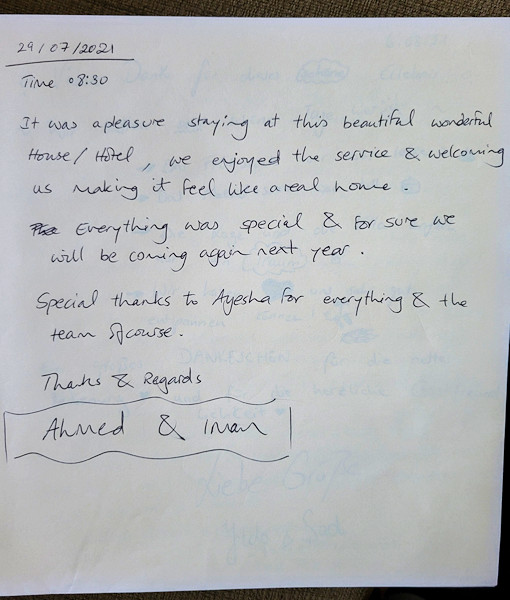 29/07/2021
Time 08:30
It was a pleasure staying at this beautiful wonderful
House/Hotel, we enjoyed the service & welcoming
us making it feel like a real home.
Everything was special & for sure we
will be coming again next year.
Special thanks to Ayesha for everything & the
team Ofcourse.
Thanks & Regards
Ahmed & Iman
DANKESCHEN für die nette
Liebe Grüße